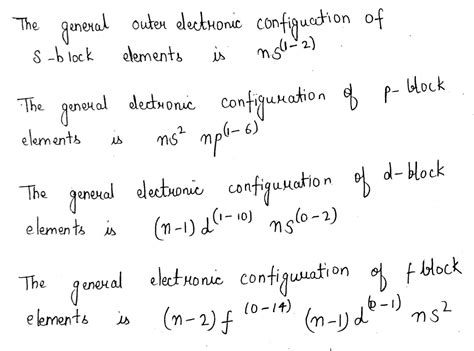 The general outer electronic configuration of
s-block elements is ns^(1-2)
The general electronic configuration of p-block
elements is ns² np^(1-6)
The general electronic configuration of d-block
elements is (n-1) d^(1-10) ns^(0-2)
The general electronic configuration of f block
elements is (n-2) f^(0-14) (n-1) d^(0-1) ns²